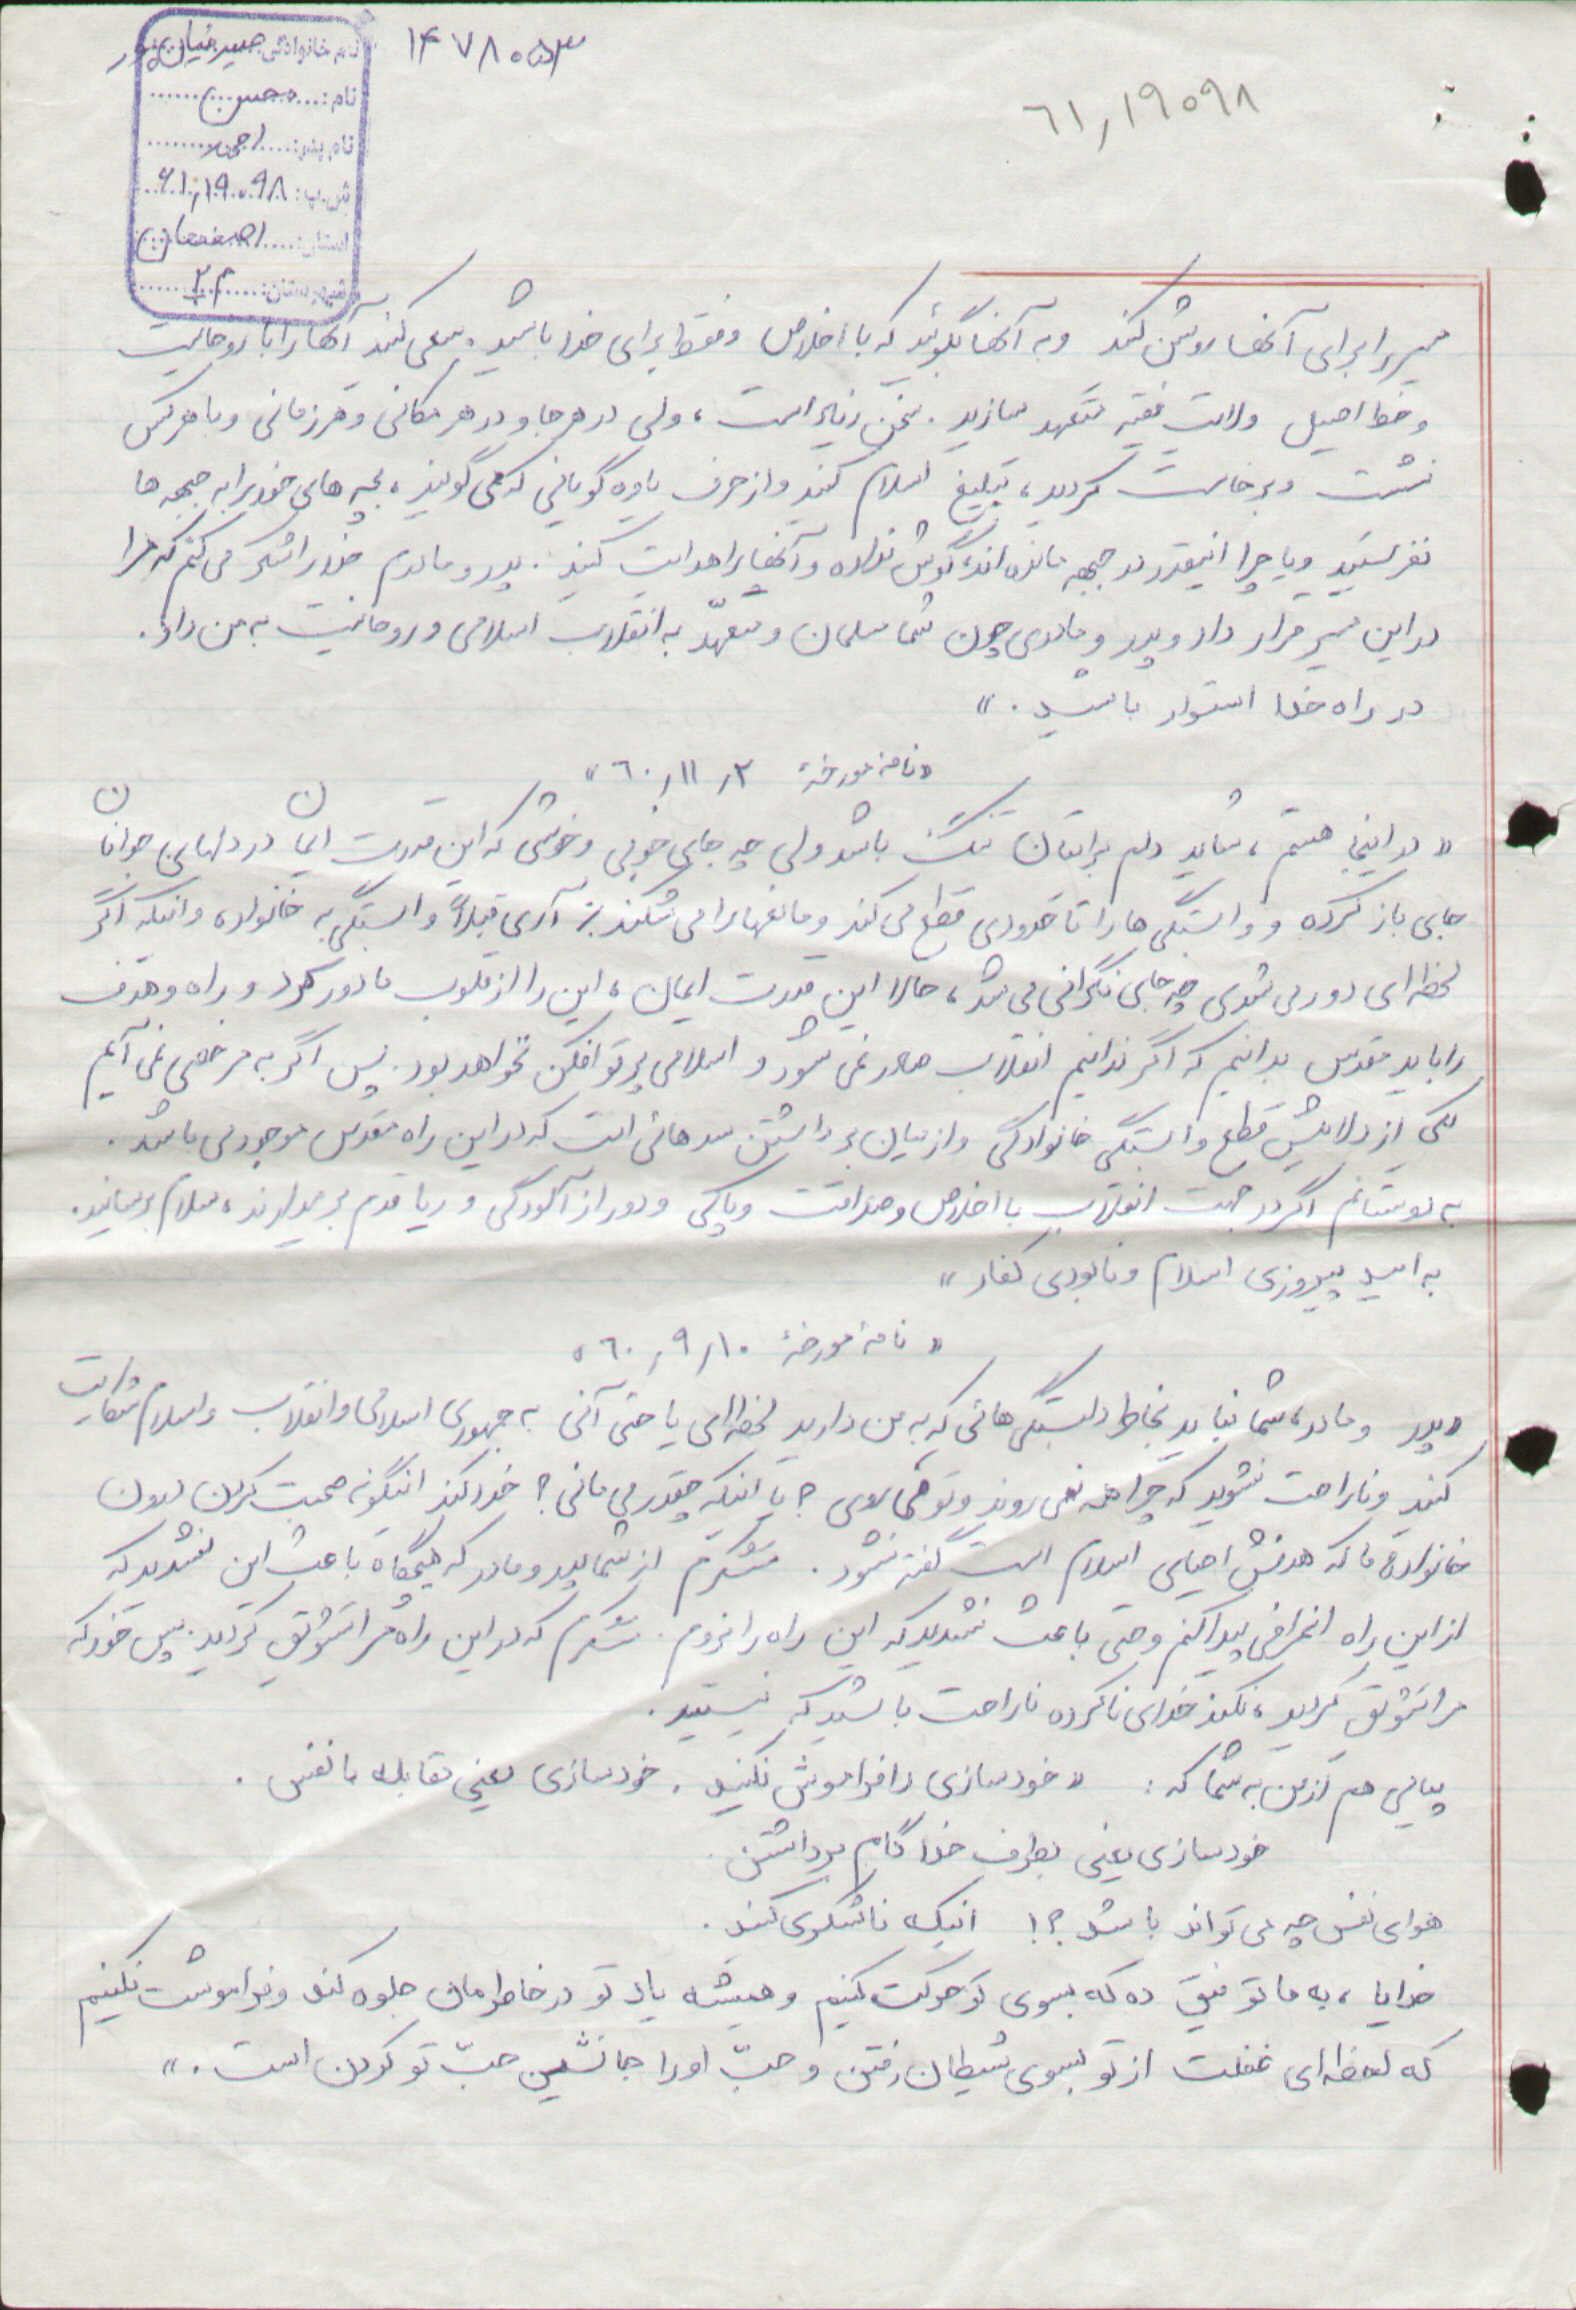 ۱۴۷۸۰۵۳
۶۱٫۱۹۰۹۸
نام خانوادگی:
نام: محسن
نام پدر: احمد
ش.پ: ۶۱٫۱۹۰۹۸
استان: اصفهان
شهرستان: ۲۴
مسیر را برای آنها روشن کنید و به آنها بگوئید که با اخلاص و فقط برای خدا باشید. سعی کنید آنها را با روحانیت
و خط اصیل ولایت فقیه متعهد سازید. سخن زیاد است، ولی در هر جا و در هر مکانی و هر زمانی و با هر کس
نشست و برخاست کردید، تبلیغ اسلام کنید و از حرف یاوه گویانی که می گویند، بچه های خود را به جبهه ها
نفرستید و یا چرا اینقدر در جبهه مانده اند، گوش نداده و آنها را هدایت کنید. پدر و مادرم خدا را شکر می کنم که مرا
در این مسیر قرار داد و پدر و مادری چون شما مسلمان و متعهد به انقلاب اسلامی و روحانیت به من داد.
در راه خدا استوار باشید. »
«نامهٔ مورخهٔ ۶۰٫۱۱٫۲»
« در اینجا هستم، شاید دلم برایتان تنگ باشد ولی چه جای خوبی و خوشی که این قدرت ایمان در دلهای جوانان
جای باز کرده و وابستگی ها را تا حدودی قطع می کند و مانعها را می شکند. آری قبلاً وابستگی به خانواده و اینکه اگر
لحظه ای دور می شدی چه جای نگرانی می شد، حالا این قدرت ایمان، این را از قلوب ما دور کرد و راه و هدف
را باید مقدس بدانیم که اگر ندانیم انقلاب صادر نمی شود و اسلامی پرتو افکن نخواهد بود. پس اگر به مرخصی نمی آیم
یکی از دلایلش قطع وابستگی خانوادگی و از میان برداشتن سدهائی است که در این راه مقدس موجود می باشد.
به دوستانم اگر در جهت انقلاب با اخلاص و صداقت و پاکی و دور از آلودگی و ریا قدم برمیدارند، سلام برسانید.
به امید پیروزی اسلام و نابودی کفار »
« نامهٔ مورخهٔ ۶۰٫۹٫۱۰ »
«پدر و مادر، شما نباید بخاطر دلبستگی هائی که به من دارید لحظه ای یا حتی آنی به جمهوری اسلامی و انقلاب و اسلام شکایت
کنید و ناراحت نشوید که چرا همه نمی روند و تو می روی ؟ یا اینکه چقدر می مانی ؟ خدا نکند اینگونه صحبت کردن درون
خانوادهٔ ما که هدفش احیای اسلام است گفته نشود. متشکرم از شما پدر و مادر که هیچگاه باعث این نشدید که
از این راه انحرافی پیدا کنم و حتی باعث نشدید که این راه را نروم. متشکرم که در این راه مرا تشویق کردید. پس خود که
مرا تشویق کردید، نکند خدای ناکرده ناراحت باشید که نیستید.
پیامی هم از من به شما که: « خودسازی را فراموش نکنید. خودسازی یعنی مقابله با نفس.
خودسازی یعنی بطرف خدا گام برداشتن.
هوای نفس چه می تواند باشد؟! اینکه ناشکری کنید.
خدایا، به ما توفیق ده که بسوی تو حرکت کنیم و همیشه یاد تو در خاطرمان جلوه کند و فراموشت نکنیم
که لحظه ای غفلت از تو بسوی شیطان رفتن و حبّ او را جانشین حبّ تو کردن است. »